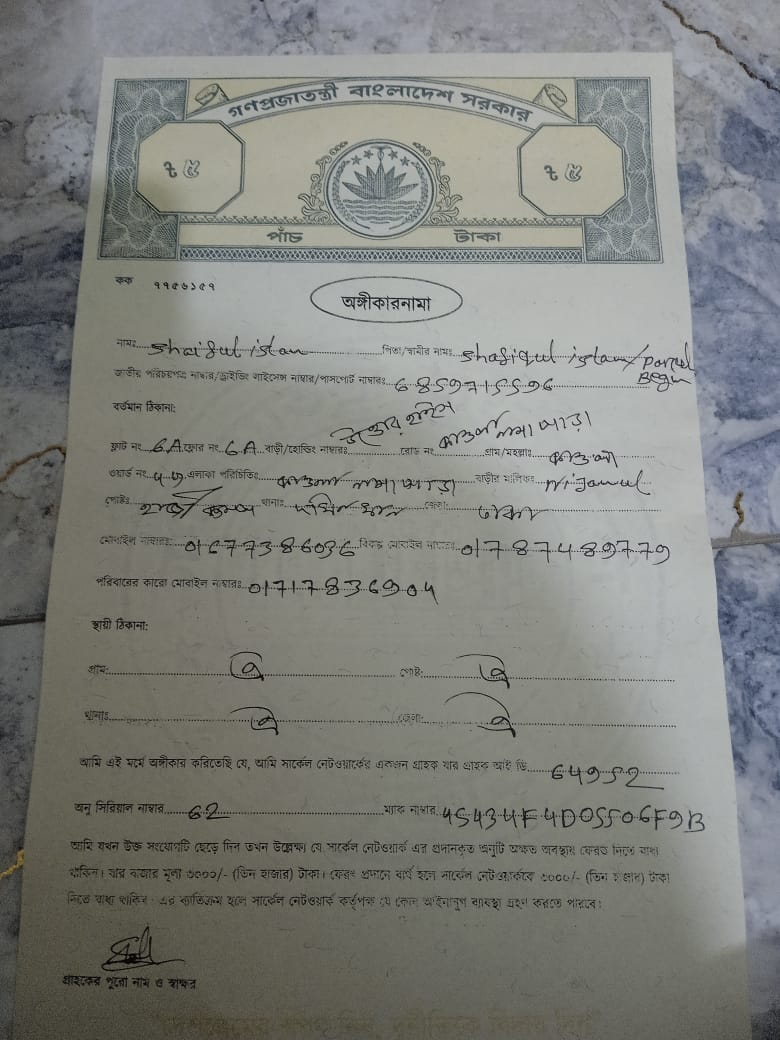 গণপ্রজাতন্ত্রী বাংলাদেশ সরকার
৳ ৫ ৳ ৫
পাঁচ টাকা
কক ৭৭৫৬১৫৭
অঙ্গীকারনামা
নামঃ Shaiful islam পিতা/স্বামীর নামঃ Shafiqul islam/
Begum
জাতীয় পরিচয়পত্র নাম্বার/ড্রাইভিং লাইসেন্স নাম্বার/পাসপোর্ট নাম্বারঃ 6859715596
বর্তমান ঠিকানা:
ফ্লাট নং 6A ফ্লোর নং 6A বাড়ী/হোল্ডিং নাম্বারঃ রোড নং কাওলা নামা পাড়া গ্রাম/মহল্লাঃ কাওলা
ওয়ার্ড নং এলাকা পরিচিতিঃ কাওলা নামা পাড়া বাড়ীর মালিকঃ
পোষ্টঃ থানাঃ দক্ষিণ খান জেলা: ঢাকা
মোবাইল নাম্বারঃ 01677386036 বিকল্প মোবাইল নাম্বারঃ 01787489779
পরিবারের কারো মোবাইল নাম্বারঃ 01717836904
স্থায়ী ঠিকানা:
গ্রাম: ঐ পোষ্ট: ঐ
থানাঃ ঐ জেলা: ঐ
আমি এই মর্মে অঙ্গীকার করিতেছি যে, আমি সার্কেল নেটওয়ার্কের একজন গ্রাহক যার গ্রাহক আই ডি 64952
অনু সিরিয়াল নাম্বার 62 ম্যাক নাম্বার 45434F4D05506F9B
আমি যখন উক্ত সংযোগটি ছেড়ে দিব তখন উল্লেখ্য যে সার্কেল নেটওয়ার্ক এর প্রদানকৃত অনুটি অক্ষত অবস্থায় ফেরত দিতে বাধ্য
থাকিব। যার বাজার মূল্য ৩০০০/- (তিন হাজার) টাকা। ফেরৎ প্রদানে ব্যর্থ হলে সার্কেল নেটওয়ার্ককে ৩০০০/- (তিন হাজার) টাকা
দিতে বাধ্য থাকিব। এর ব্যতিক্রম হলে সার্কেল নেটওয়ার্ক কর্তৃপক্ষ যে কোন আইনানুগ ব্যবস্থা গ্রহণ করতে পারবে।
গ্রাহকের পুরো নাম ও স্বাক্ষর